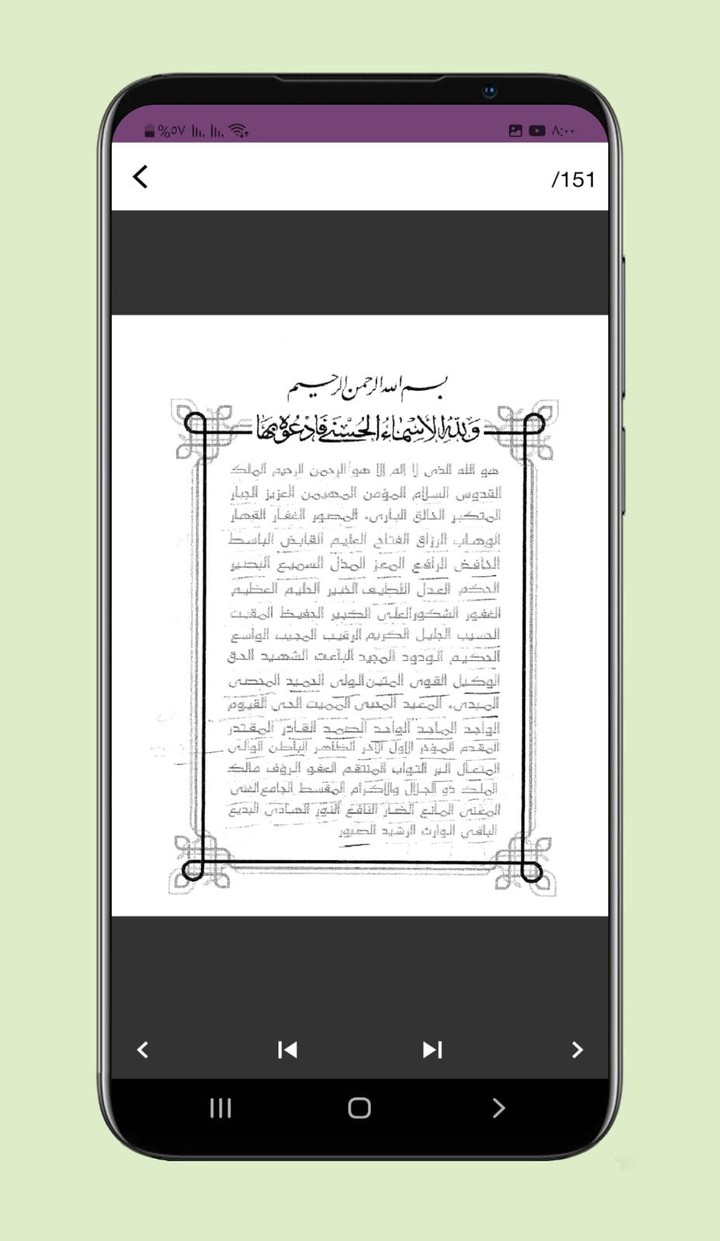 %٥٧ ٨:٠٠
/151
بسم الله الرحمن الرحيم
وَلِلَّهِ الأَسْمَاءُ الحُسْنَى فَادْعُوهُ بِهَا
هو الله الذى لا إله إلا هو الرحمن الرحيم الملك
القدوس السلام المؤمن المهيمن العزيز الجبار
المتكبر الخالق البارىء المصور الغفار القهار
الوهاب الرزاق الفتاح العليم القابض الباسط
الخافض الرافع المعز المذل السميع البصير
الحكم العدل اللطيف الخبير الحليم العظيم
الغفور الشكور العلى الكبير الحفيظ المقيت
الحسيب الجليل الكريم الرقيب المجيب الواسع
الحكيم الودود المجيد الباعث الشهيد الحق
الوكيل القوى المتين الولى الحميد المحصى
المبدىء المعيد المحيى المميت الحى القيوم
الواجد الماجد الواحد الصمد القادر المقتدر
المقدم المؤخر الأول الآخر الظاهر الباطن الوالى
المتعال البر التواب المنتقم العفو الرؤف مالك
الملك ذو الجلال والاكرام المقسط الجامع الغنى
المغنى المانع الضار النافع النور الهادى البديع
الباقى الوارث الرشيد الصبور